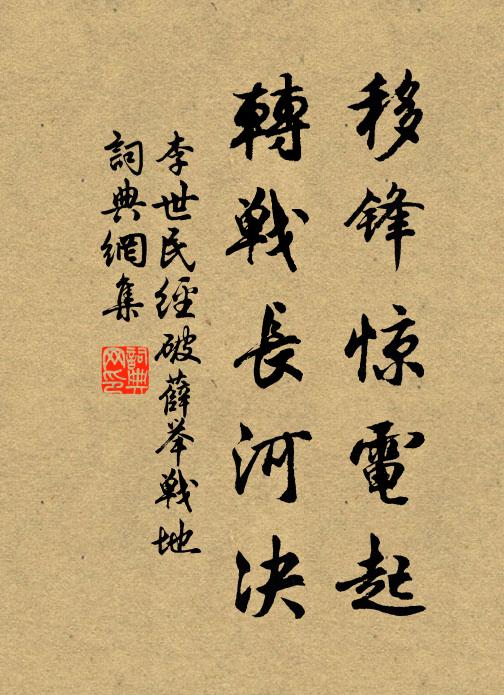 移鋒惊電起
轉戰長河決
李世民經破薛举戰地
詞典網集
詞典网印